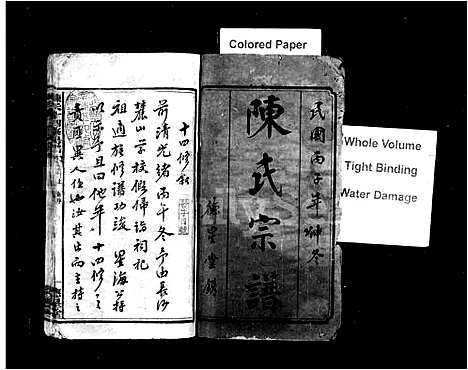 Colored Paper
Whole Volume
Tight Binding
Water Damage
民國丙子年仲冬
陳氏宗譜
德星堂鐫
十四修敘
前清光緒丙午冬予由長沙
麓山學校假歸謁祠祀
祖適族修譜功竣 星海公持
以示予且曰他年十四修之
責匪異人任也汝其出而主持之